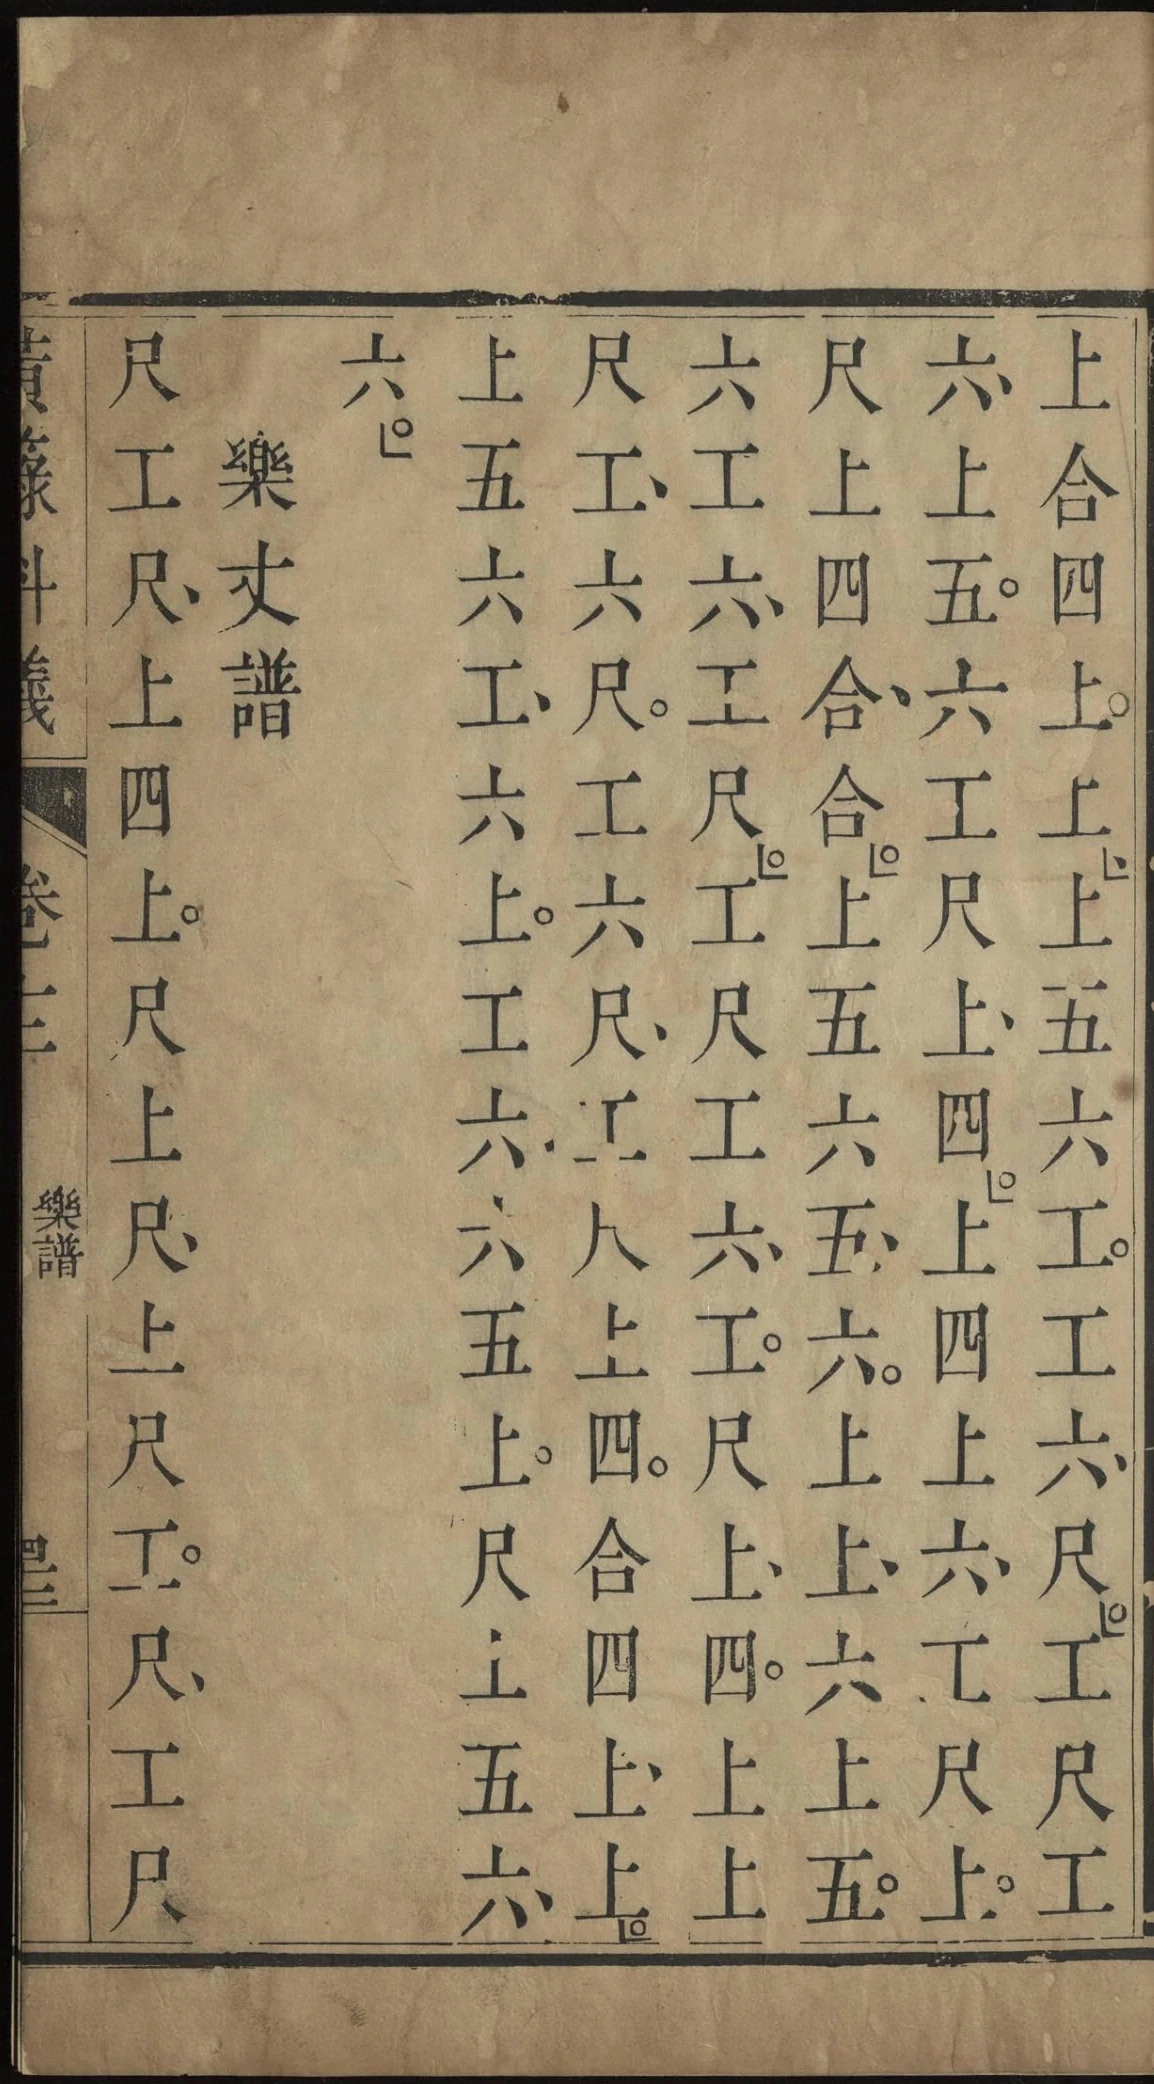 上合四上。上、上五六工。工六、尺。工尺工
六、上五。六工尺上、四。上四上六、工尺上。
尺上四合、合。上五六五、六。上上、六上五。
六工六、工尺。工尺工六、工。尺上、四。上上
尺工、六尺。工六尺、工尺上四。合四上、上。
上五六工、六上。工六、六五上。尺上五六、
六。
樂丈譜
尺工尺、上四上。尺上尺、上尺工。尺、工尺
黃籙科儀
卷
樂譜